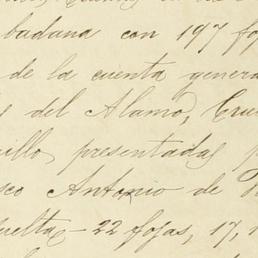 badana con 197 foj
de la cuenta genera
del Alamo, Cru
illo presentadas p
co Antonio de
uelta - 22 fojas, 17,